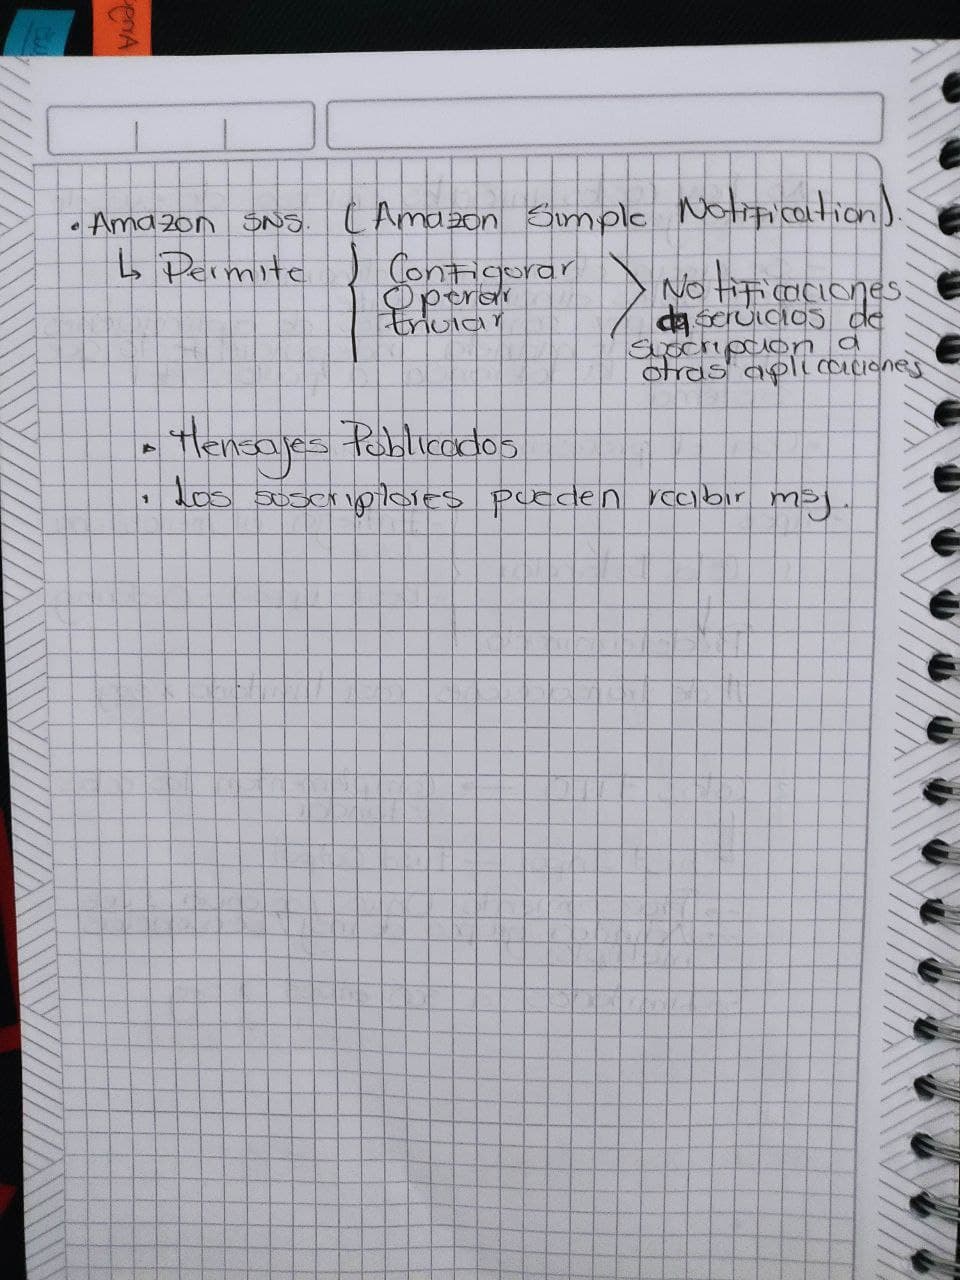 • Amazon SNS. (Amazon Simple Notification).
↳ Permite { Configurar
Operar
Enviar
> Notificaciones
servicios de
suscripcion a
otras aplicaciones
• Mensajes Publicados
• Los suscriptores pueden recibir msj.